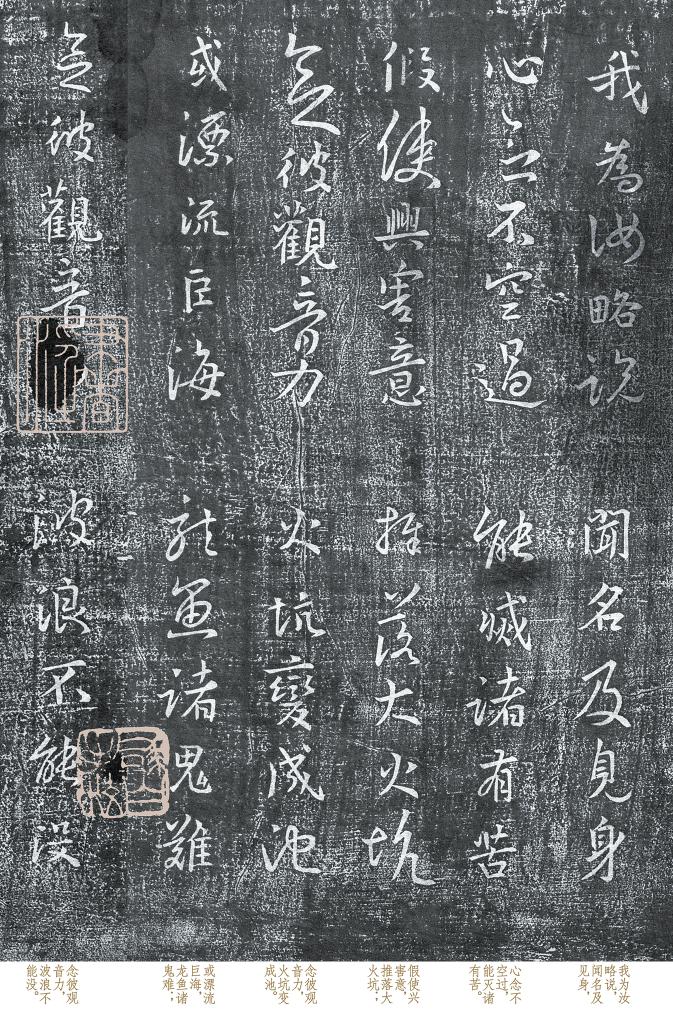 我為汝略説 聞名及見身
心念不空過 能滅諸有苦
假使興害意 推落大火坑
念彼觀音力 火坑變成池
或漂流巨海 龍魚諸鬼難
念彼觀音 波浪不能没
我为汝
略说，
闻名及
见身，
心念不
空过，
能灭诸
有苦。
假使兴
害意，
推落大
火坑；
念彼观
音力，
火坑变
成池。
或漂流
巨海，
龙鱼诸
鬼难；
念彼观
音力，
波浪不
能没。